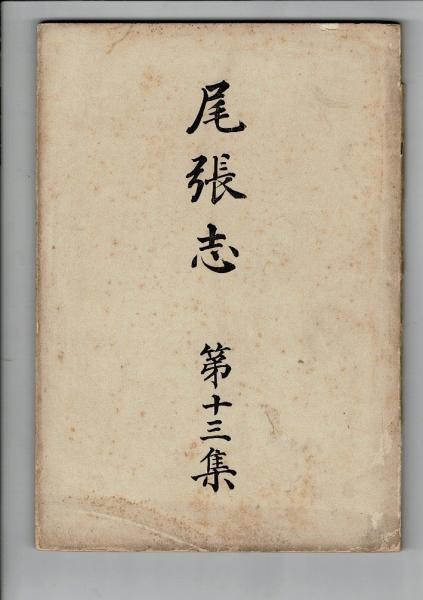 尾張志 第十三集